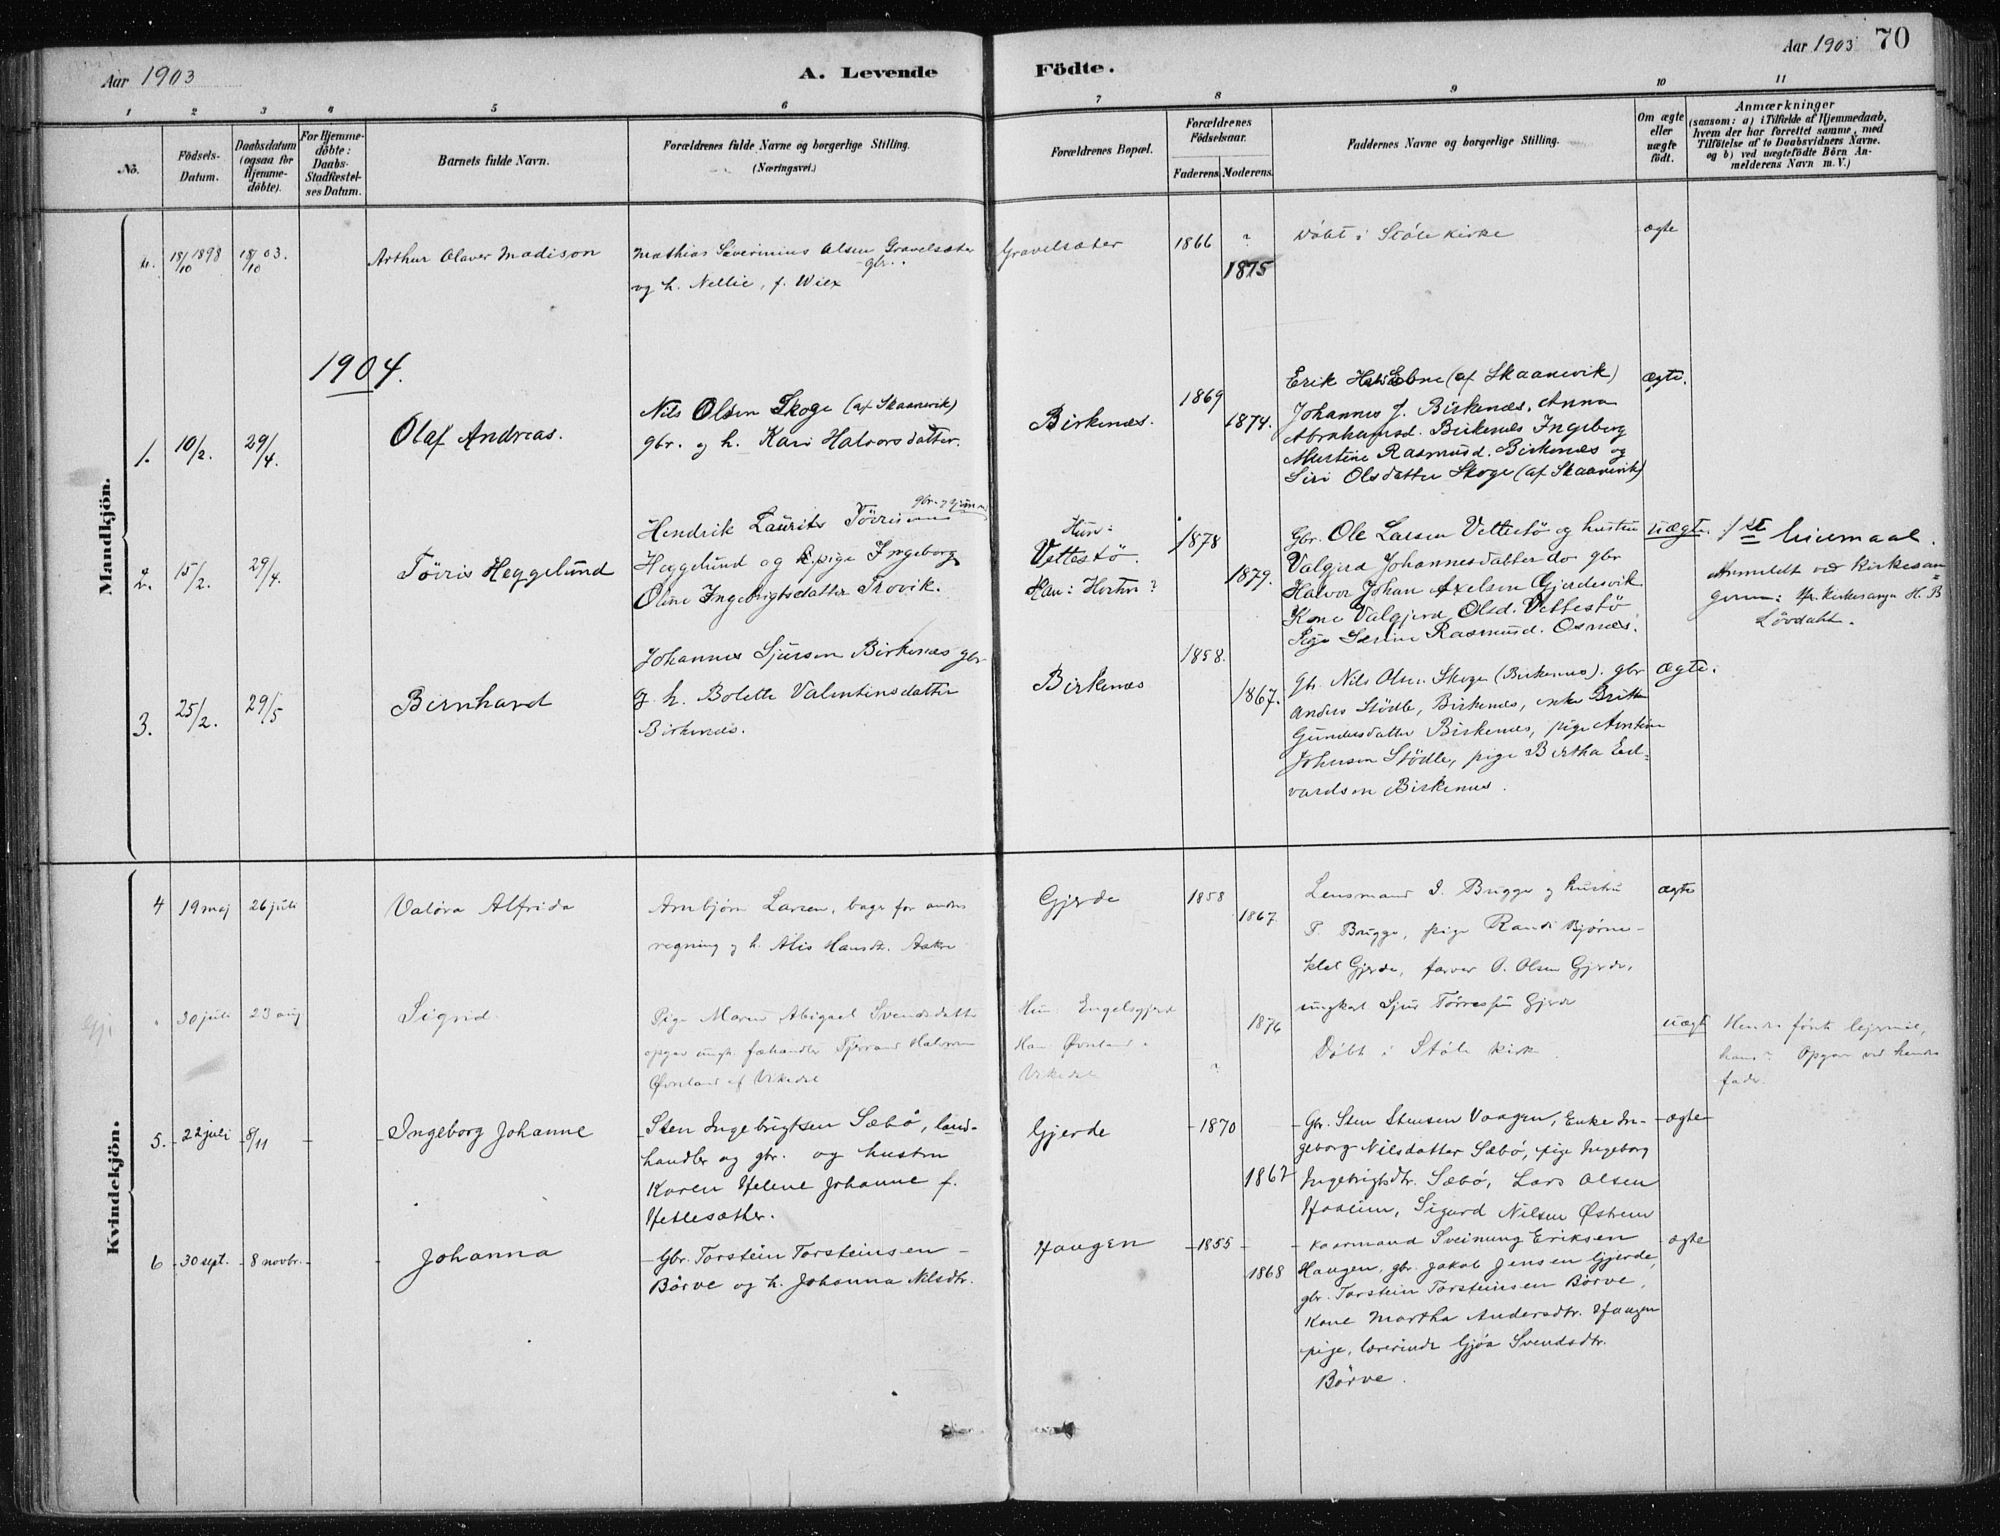 Aar 1903
A. Levende Födte.
Aar 1903
70
1 2 3 4 5 6 7 8 9 10 11
No.
Födsels-Datum.
Daabsdatum (ogsaa for Hjemme-döbte).
For Hjemme-döbte: Daabs-Stadfæstel-ses Datum.
Barnets fulde Navn.
Forældrenes fulde Navne og borgerlige Stilling.
(Næringsvei.)
Forældrenes Bopæl.
Forældrenes Födselsaar.
Faderens Moderens.
Faddernes Navne og borgerlige Stilling.
Om ægte eller uægte födt.
Anmærkninger
(saasom: a) i Tilfælde af Hjemmedaab,
hvem der har forrettet samme, med
Tilföielse af to Daabsvidners Navne.
og b) ved uægtefödte Börn An-
melderens Navn m. V.)
Mandkjön.
18/10 1898
18/10 03.
Arthur Olaver Madison
Mathias Severinius Olsen Gravelsæter
gbr.
og h. Nellie, f. Wiex
Gravelsæter
1866
?
1875
Døbt i Støle kirke
ægte
1904.
1.
10/2.
29/4.
Olaf Andreas.
Nils Olsen Skoge (af Skaanevik)
gbr. og h. Kari Halvorsdatter.
Birkenæs.
1869
1874.
Erik Ebne (af Skaanevik)
Johannes J. Birkenæs, Anna
Abrahamsd. Birkenæs Ingeborg
Martine Rasmusd. Birkenæs og
Siri Olsdatter Skoge (af Skaanevik)
ægte.
2.
15/2.
29/4.
Tövris Heggelund
Hendrik Laurits Tövrisen
Heggelund og pige Ingeborg
Oline Ingebrigtsdatter Trovik.
Hun:
Vettestö.
Han:
1878
1879.
Gbr. Ole Larsen Vettestö og hustru
Valgerd Johannesdatter do gbr
Halvor Johan Axelsen Gjerdesvik
Kone Valgjerd Olsd. Vettestö
Pige Serine Rasmusd. Osnes.
uægte.
1st leiermaal.
Anmeldt ved kirkesan=
geren: kirkesanger H. B
Lövdahl.
3.
25/2.
29/5
Bernhard
Johannes Sjursen Birkenæs gbr
g. h. Bolette Valentinsdatter
Birkenes.
Birkenæs
1858.
1867.
Gb. Nils Olsen Skoge (Birkenes). gbr
Anders Stödle, Birkenes, enke Britte
Gundersdatter Birkenes, pige Arntine
Johnsen Stödle, pige Bertha Ed-
vardsen Birkenes.
ægte.
Kvindekjön.
4
19 maj
26 juli
Valøra Alfrida
Arnbjørn Larsen, bager for andres
regning g h. Alis Hansdt. Aakre
Gjerde
1858
1867.
Lensmand I. Brugge g hustru
T. Brugge, pige Randi Bjørne-
klet Gjerde, farver O. Olsen Gjerde,
ungkarl Sjur Tørresen Gjerde
ægte
30 juli
23 aug
Sigrid.
Pige Maren Abigael Svendsdatter
opgav ungk. fæhandler Tjerand Halvorsen
Øvreland af Vikedal
Hun: Engelsgjerd
Han: Øvreland.
Vikedal
1876
?
Døbt i Støle kirke
uægte
Hendes første lejermål,
hans? Opgav ved hendes
fader.
5.
22 juli
8/11
Ingeborg Johanne
Sten Ingebrigtsen Sæbö, land-
handler og gbr. og hustru
Karen Helene Johanne f.
Hetlesæther.
Gjerde
1870
1867
Gbr. Sten Stensen Vaagen, Enke In-
geborg Nilsdatter Sæbö, pige Ingeborg
Ingebrigtsdtr. Sæbö, Lars Olsen
Haaeim, Sigurd Nilsen Østrem
ægte
6
30 sept.
8 novbr.
Johanna
Gbr. Torstein Torsteinsen
Börve og h. Johanna Nilsdtr.
Haugen
1855
1868
Kaarmand Sveinung Eriksen
Haugen, gbr. Jakob Jensen Gjerde,
gbr. Torstein Torsteinsen Börve,
Kone Martha Andersdtr. Haugen
pige, lærerinde Gjöa Svendsdtr.
Börve.
ægte